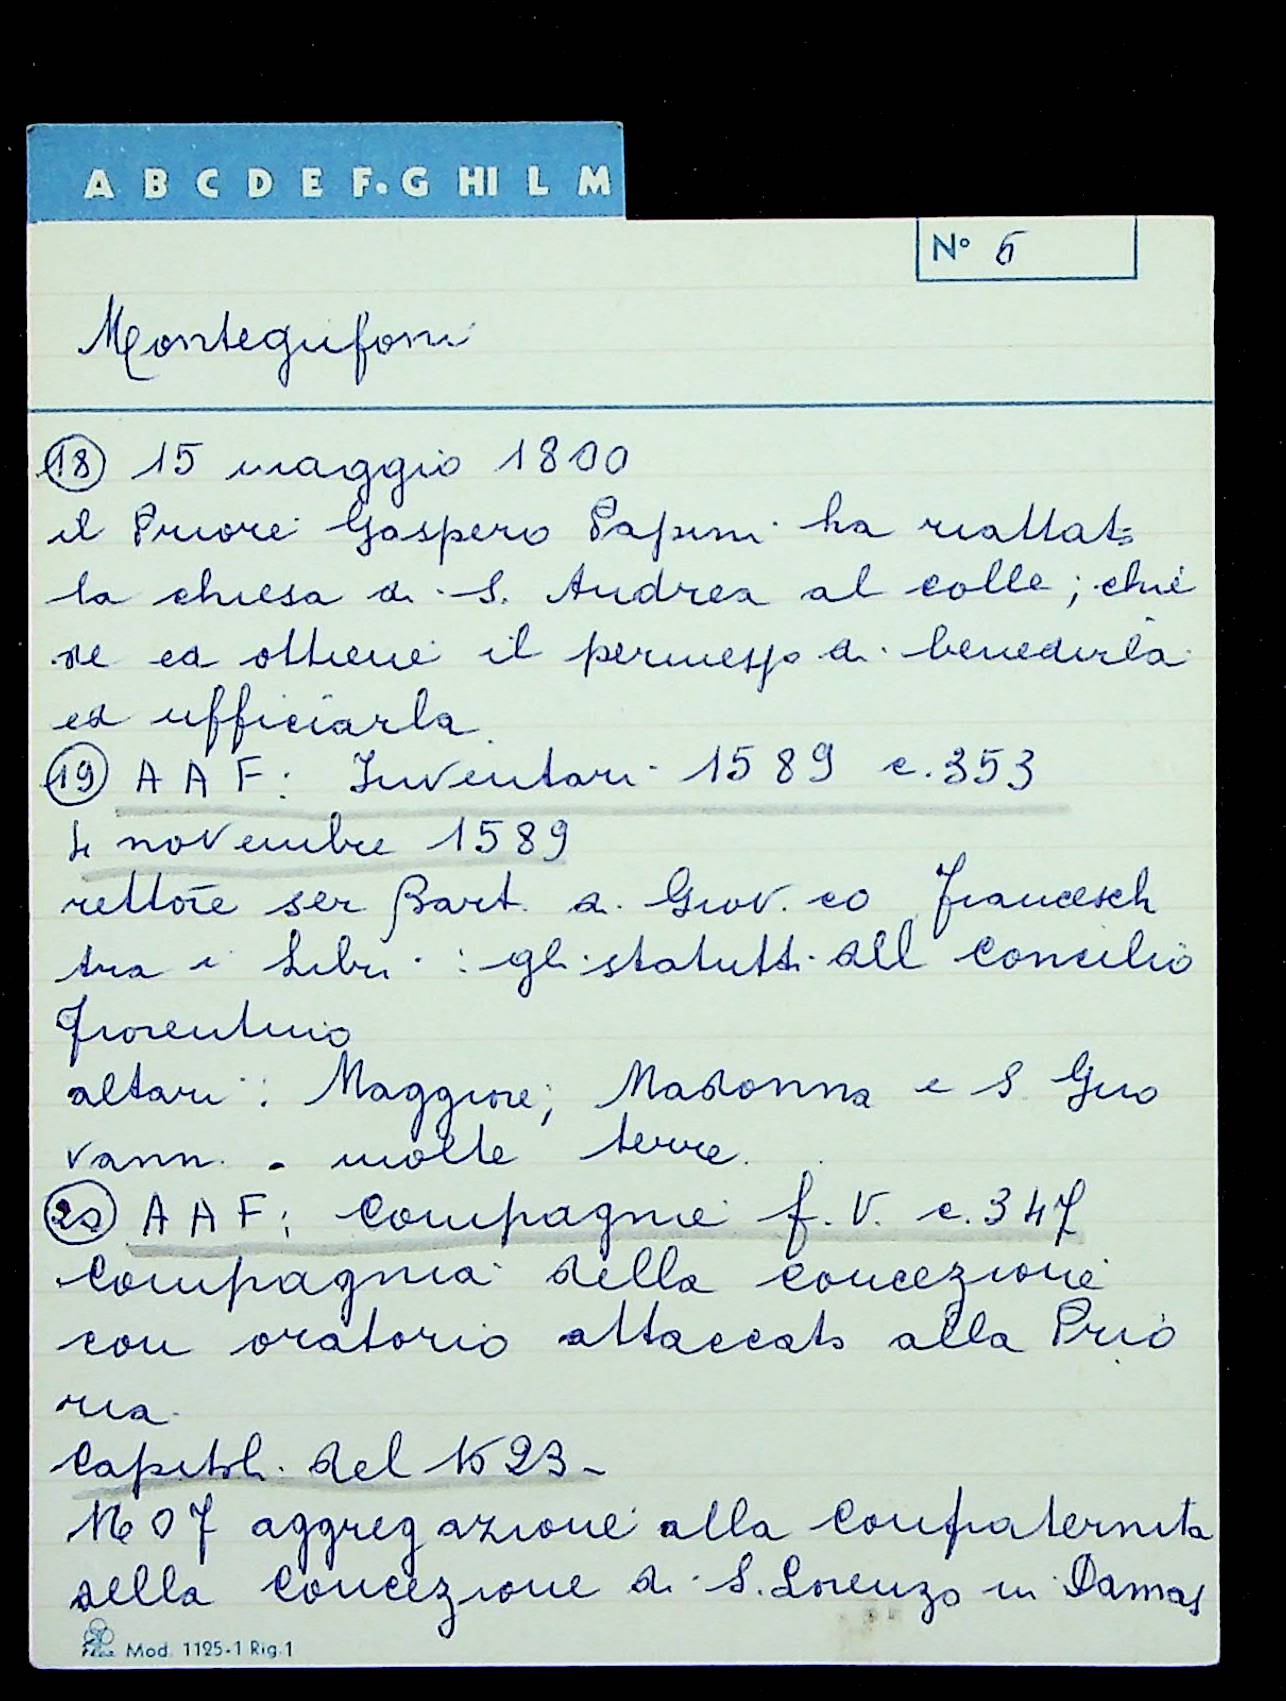 A B C D E F. G HI L M
N° 6
Montegufoni
18 15 maggio 1800
il Priore Gaspero Papini ha riattato
la chiesa di S. Andrea al colle; chie
de ed ottiene il permesso di benedirla
ed ufficiarla.
19 A A F: Inventari 1589 c. 353
4 novembre 1589
rettore ser Bart. di Giov. co Francesch
tra i Libri: gli statuti dell Concilio
fiorentino
altari: Maggiore; Madonna e S. Gio
vanni. - molte terre.
20 A A F: Compagnie f. V. c. 347
Compagnia della concezione
con oratorio attaccato alla Prio
ria.
Capitoli del 1523 -
1607 aggregazione alla Confraternita
della Concezione di S. Lorenzo in Damas
Mod. 1125-1 Rig. 1